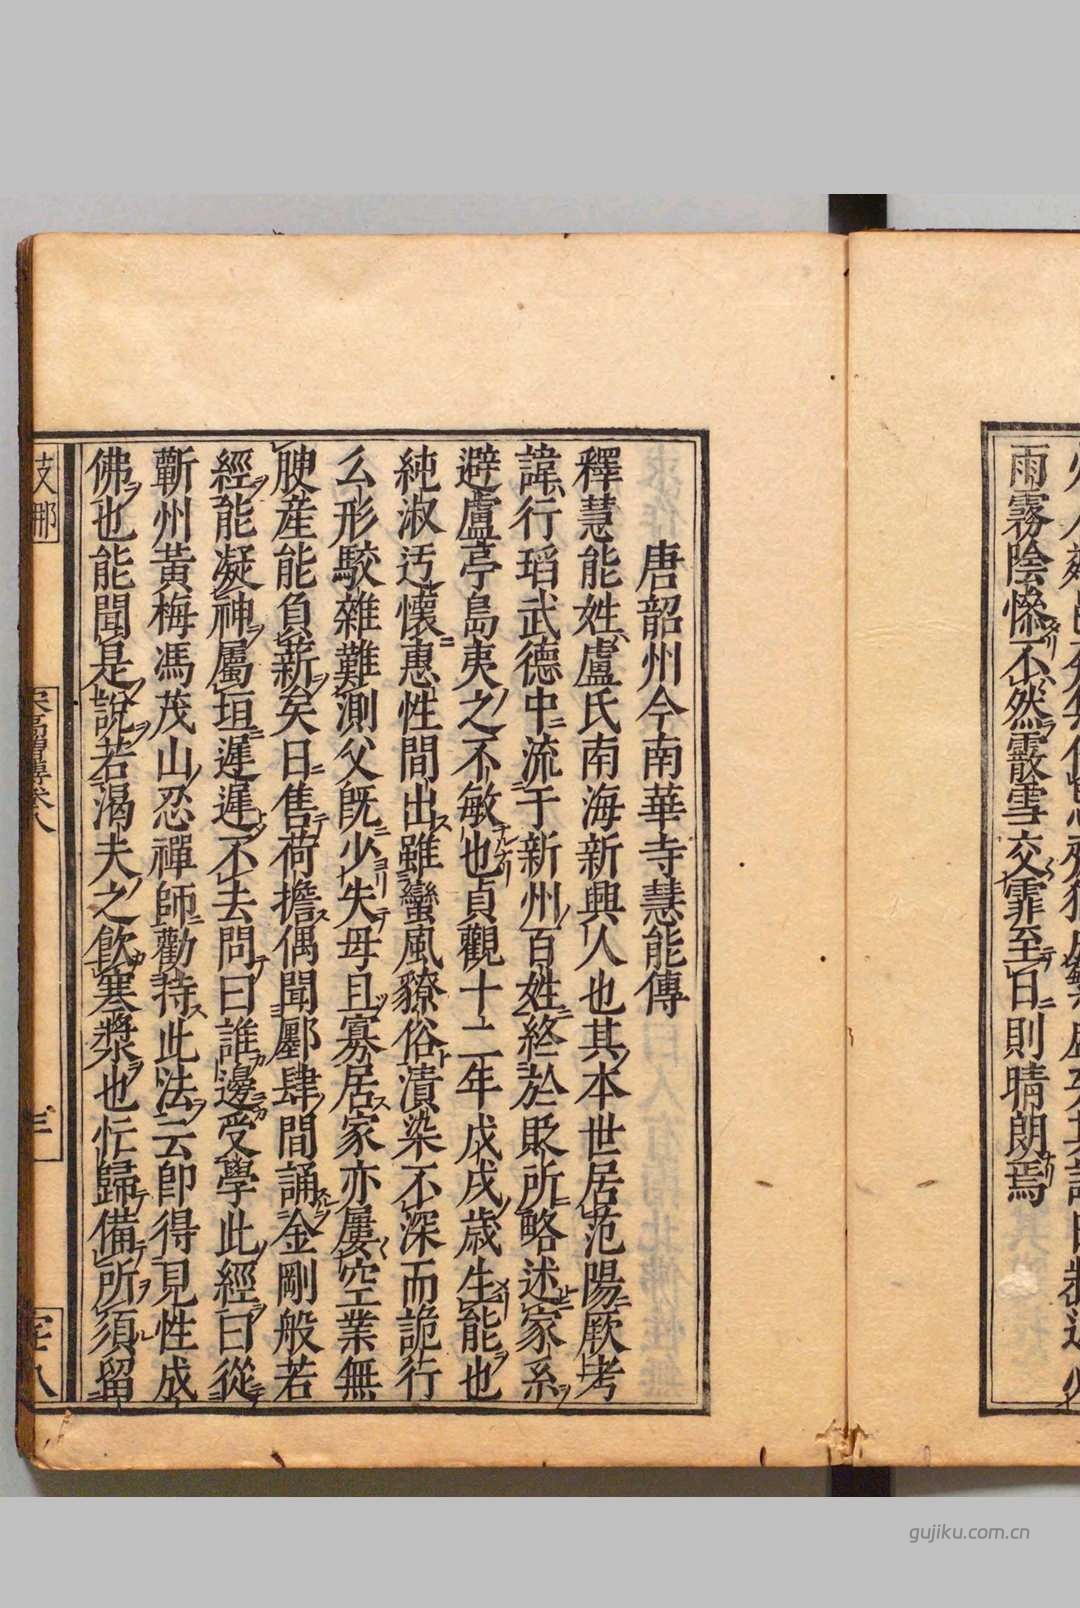 雨霧陰慘不然霰雪交霏至日則晴朗焉
唐韶州今南華寺慧能傳
釋慧能姓盧氏南海新興人也其本世居范陽厥考
諱行瑫武德中流于新州百姓終於貶所略述家系
避盧亭島夷之不敏也貞觀十二年戊戌歲生能也
純淑迃懷惠性間出雖蠻風獠俗漬染不深而詭行
么形駮雜難測父既少失母且寡居家亦屢空業無
腴產能負薪矣日售荷擔偶聞鄽肆間誦金剛般若
經能凝神屬垣遲遲不去問曰誰邊受學此經曰從
蘄州黃梅馮茂山忍禪師勸持此法云卽得見性成
佛也能聞是說若渴夫之飲寒漿也忙歸備所須留
支那
宋高僧傳卷八
三
gujiku.com.cn